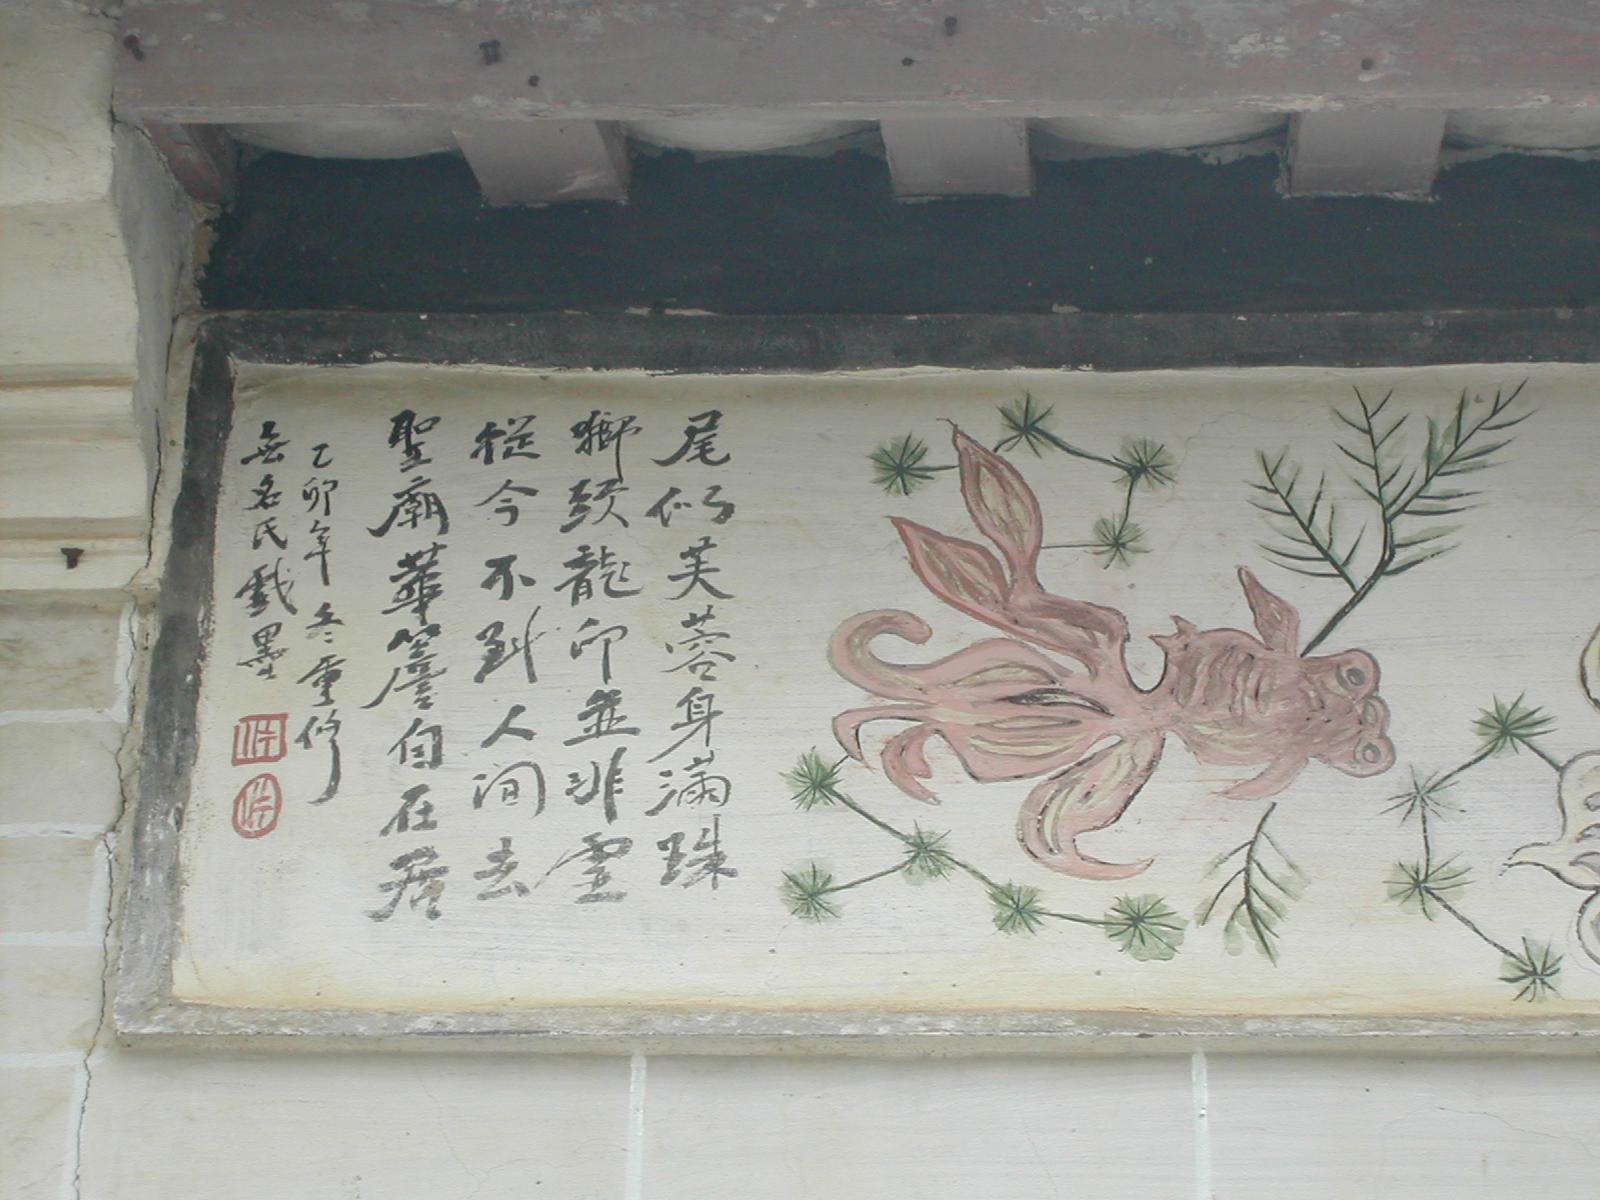 尾似芙蓉身滿珠
獅頭龍印並非靈
從今不到人间去
聖廟華簷自在居
乙卯年冬重修
無名氏戲墨